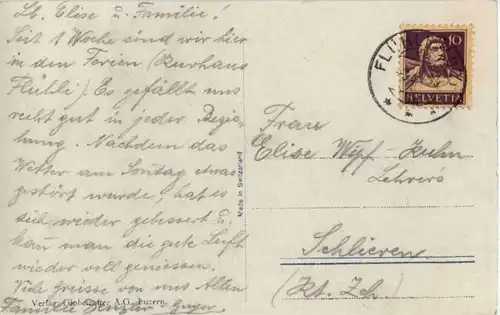 Lb. Elise u. Familie!
Seit 1 Woche sind wir hier
in den Ferien (Kurhaus
Flühli) Es gefällt uns
recht gut in jeder Bezie-
hung. Nachdem das
Wetter am Sontag etwas
gestört wurde, hat es
sich wieder gebessert u.
kan man die gute Luft
wieder voll geniessen.
Viele Grüsse von uns Allen
Familie
Verlag Globetrotter A.G. Luzern.
Made in Switzerland
FLÜH
10
HELVETIA
Frau
Elise Wipf-Kuhn
Lehrers
Schlieren
(Kt. Zch.)